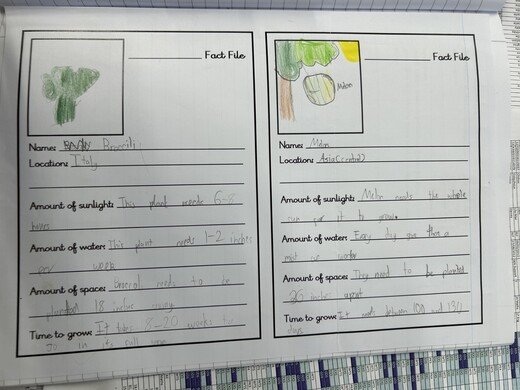 Fact File
Name: Brocili
Location: Italy
Amount of sunlight: This plant needs 6-8
hours
Amount of water: This plant needs 1-2 inches
per week
Amount of space: Broccoli needs to be
18 inches away
Time to grow: It takes 8-20 weeks
in its full
Melon
Fact File
Name: Melon
Location: Asia (central)
Amount of sunlight: Melon needs the whole
sun for it to grow.
Amount of water: Every day give them a
water
Amount of space: They need to be planted
36 inches apart
Time to grow: It needs between 100 and 130
days